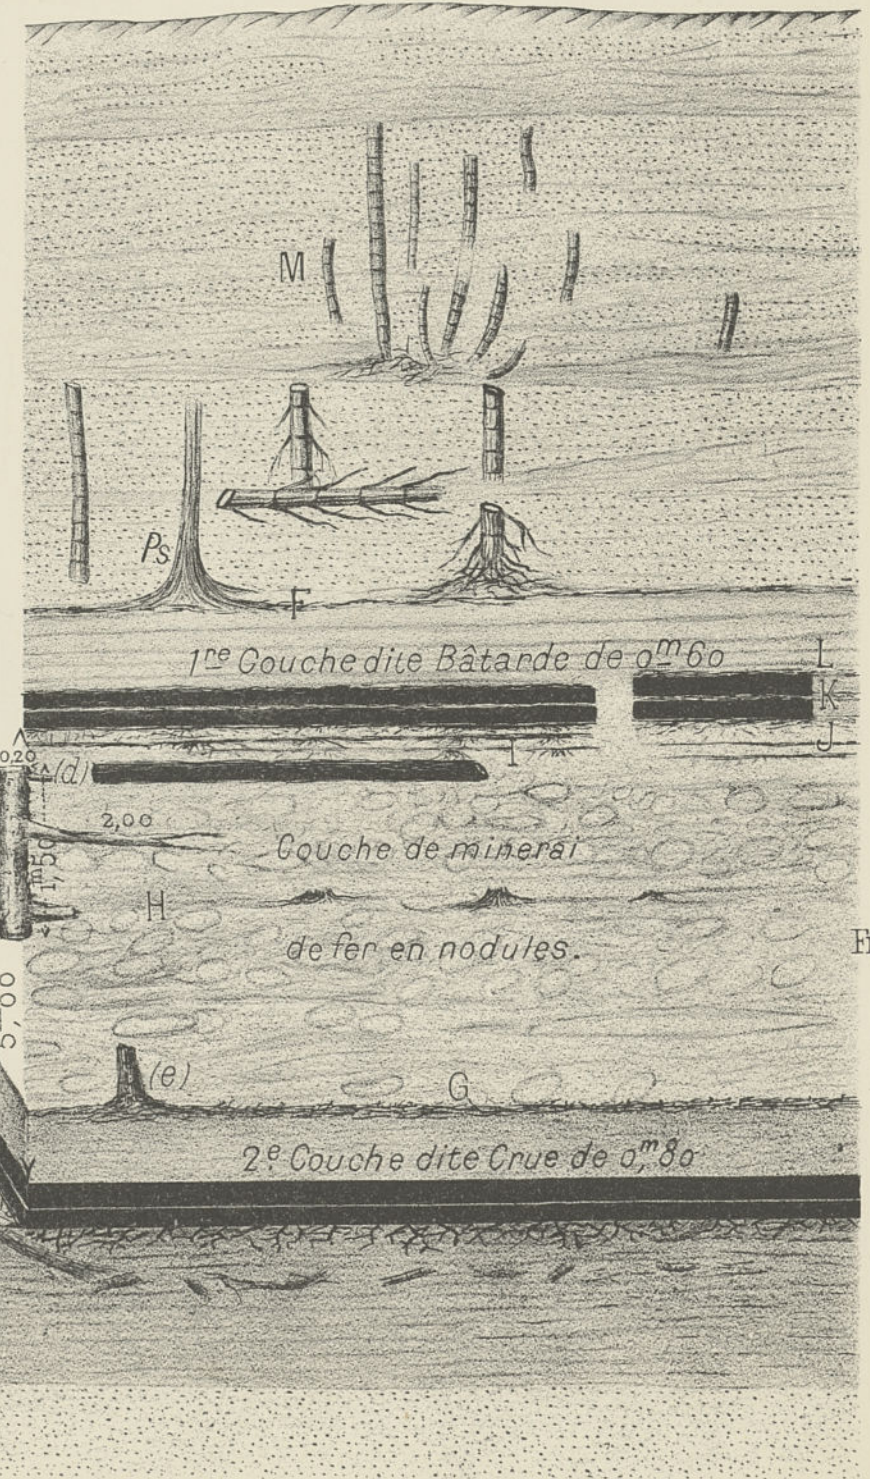 M
Ps
F
1re Couche dite Bâtarde de 0m60
L
K
J
I
0,20
(d)
2,00
Couche de minerai
1m,50
H
de fer en nodules.
5,00
(e)
G
2e Couche dite Crue de 0m,80